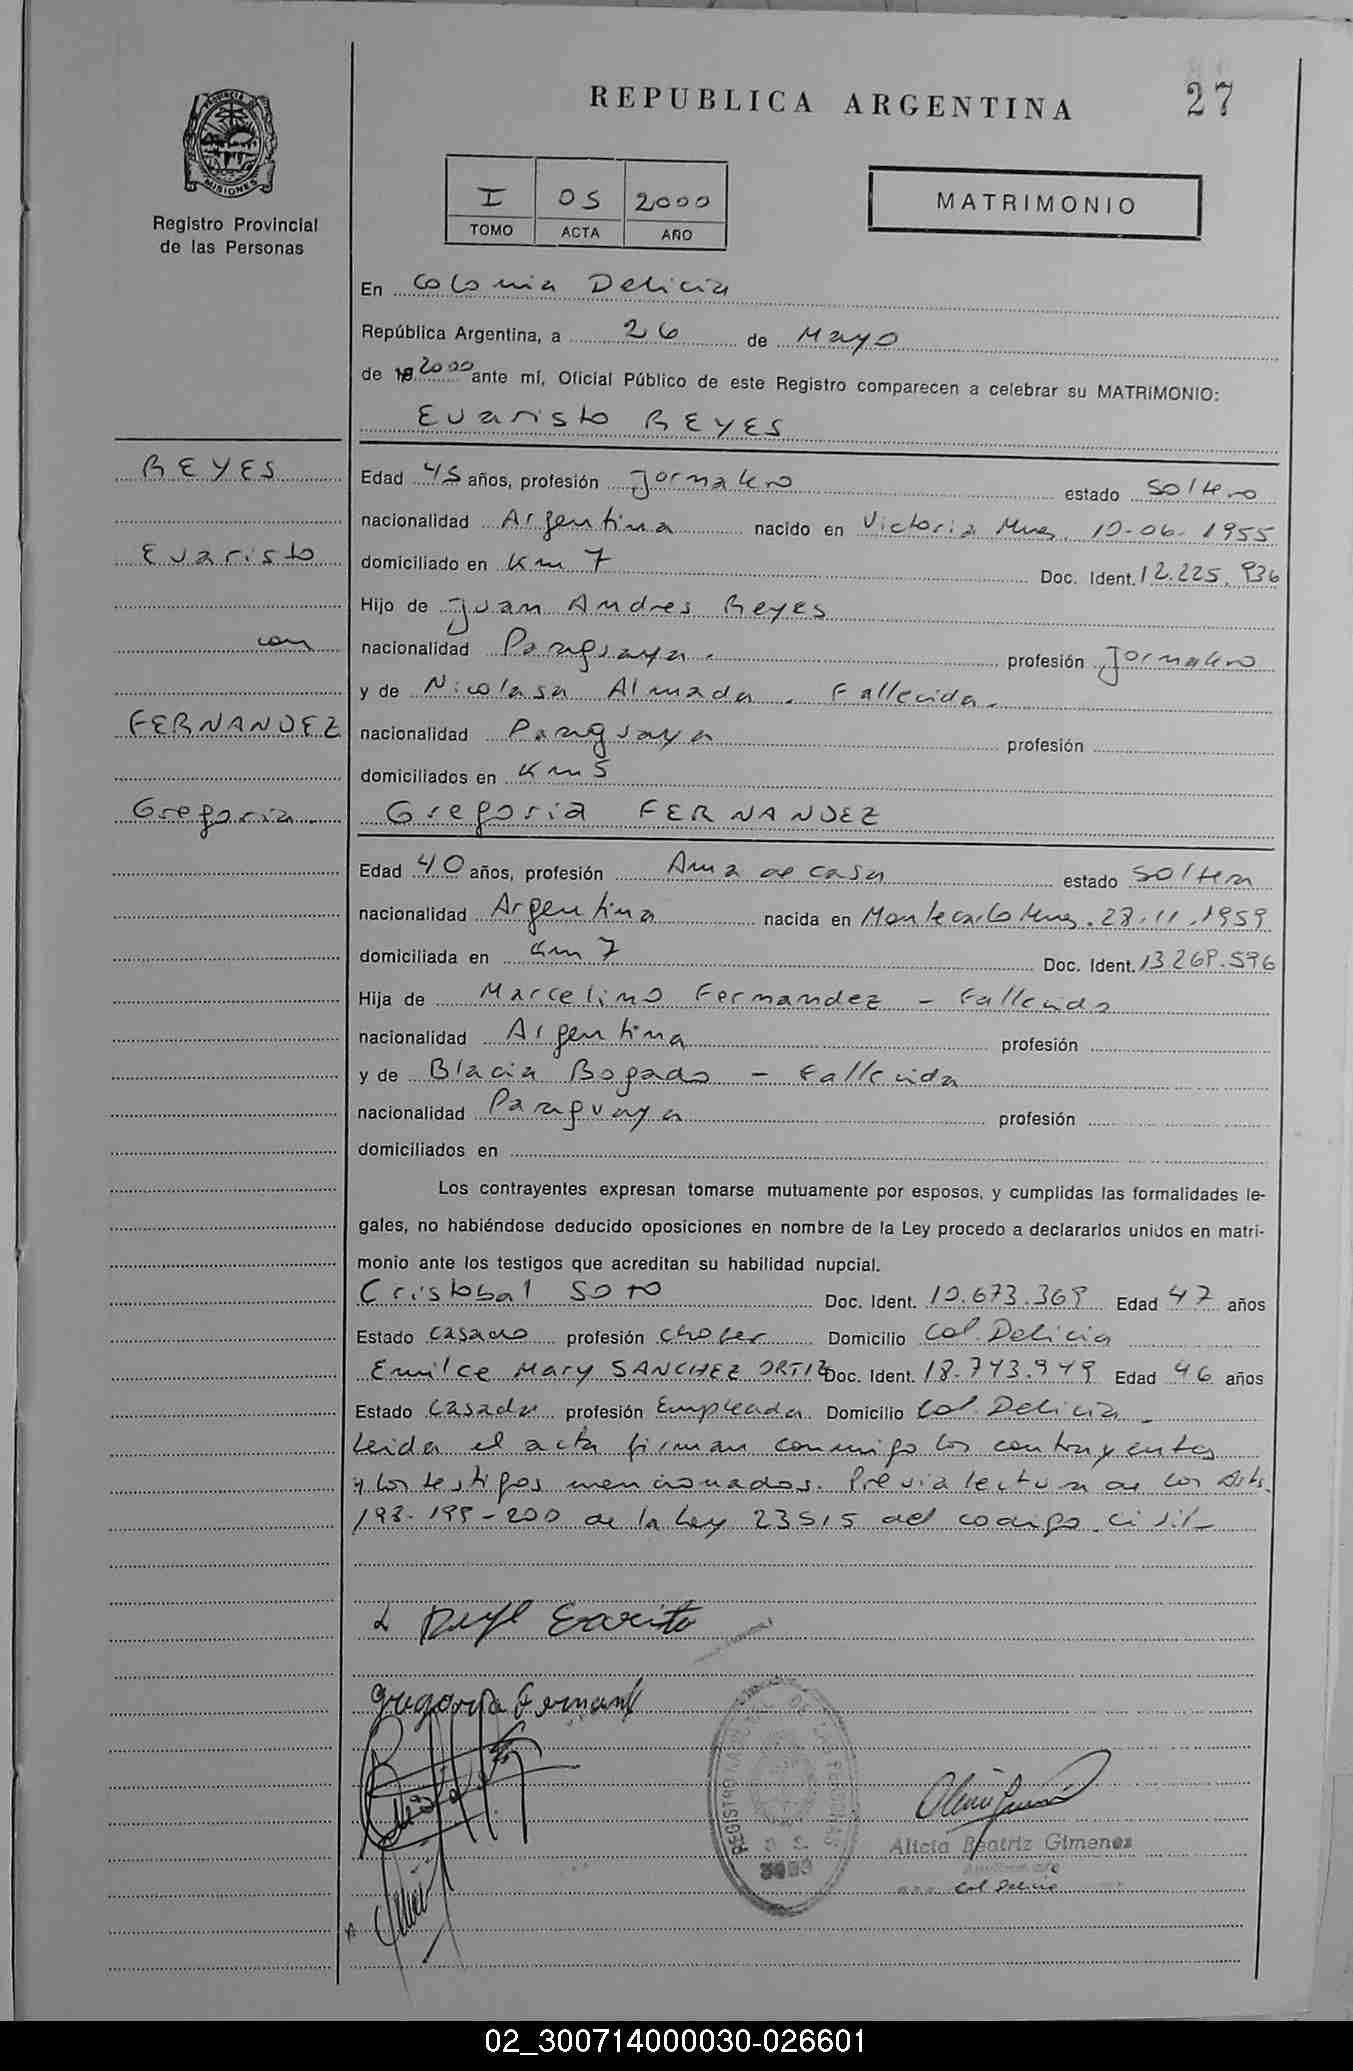 27
REPUBLICA ARGENTINA
PROVINCIA DE
MISIONES
Registro Provincial
de las Personas
I 05 2000
TOMO ACTA AÑO
MATRIMONIO
En Colonia Delicia
República Argentina, a 26 de Mayo
de 19 2000 ante mí, Oficial Público de este Registro comparecen a celebrar su MATRIMONIO:
Evaristo REYES
REYES
Edad 45 años, profesión Jornalero estado soltero
nacionalidad Argentina nacido en Victoria Mnes. 10-06-1955
Evaristo
domiciliado en Km 7 Doc. Ident. 12.225.936
Hijo de Juan Andres Reyes
con
nacionalidad Paraguaya. profesión Jornalero
y de Nicolasa Almada. Fallecida.
FERNANDEZ
nacionalidad Paraguaya profesión
domiciliados en Km 5
Gregoria.
Gregoria FERNANDEZ
Edad 40 años, profesión Ama de casa estado soltera
nacionalidad Argentina nacida en Montecarlo Mnes. 28.11.1959
domiciliada en Km 7 Doc. Ident. 13.268.596
Hija de Marcelino Fernandez - Fallecido
nacionalidad Argentina profesión
y de Blacia Bogado - Fallecida
nacionalidad Paraguaya profesión
domiciliados en
Los contrayentes expresan tomarse mutuamente por esposos, y cumplidas las formalidades le-
gales, no habiéndose deducido oposiciones en nombre de la Ley procedo a declararlos unidos en matri-
monio ante los testigos que acreditan su habilidad nupcial.
Cristobal SOTO Doc. Ident. 10.673.369 Edad 47 años
Estado casado profesión chofer Domicilio Col. Delicia
Emilce Mary SANCHEZ ORTIZ Doc. Ident. 18.743.949 Edad 46 años
Estado casada profesión Empleada Domicilio Col. Delicia.
Leida el acta firman conmigo los contrayentes
y los testigos mencionados. Previa lectura de los Arts.
198-199-200 de la Ley 23515 del codigo civil
Gregoria Fernand
REGISTRO DE LAS PERSONAS
Alicia Beatriz Gimenez
Col Delicia
02_300714000030-026601